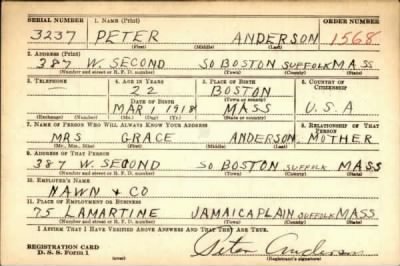 SERIAL NUMBER 1. NAME (Print) ORDER NUMBER
3237 PETER ANDERSON 1568
(First) (Middle) (Last)
2. ADDRESS (Print)
387 W. SECOND SO BOSTON SUFFOLK MASS
(Number and street or R. F. D. number) (Town) (County) (State)
3. TELEPHONE 4. AGE IN YEARS 5. PLACE OF BIRTH 6. COUNTRY OF CITIZENSHIP
22 BOSTON
DATE OF BIRTH (Town or county)
MAR 1 1918 MASS U.S.A
(Exchange) (Number) (Mo.) (Day) (Yr.) (State or country)
7. NAME OF PERSON WHO WILL ALWAYS KNOW YOUR ADDRESS 8. RELATIONSHIP OF THAT PERSON
MRS GRACE ANDERSON MOTHER
(Mr., Mrs., Miss) (First) (Middle) (Last)
9. ADDRESS OF THAT PERSON
387 W. SECOND SO BOSTON SUFFOLK MASS
(Number and street or R. F. D. number) (Town) (County) (State)
10. EMPLOYER'S NAME
NAWN & CO
11. PLACE OF EMPLOYMENT OR BUSINESS
75 LAMARTINE JAMAICA PLAIN SUFFOLK MASS
(Number and street or R. F. D. number) (Town) (County) (State)
I AFFIRM THAT I HAVE VERIFIED ABOVE ANSWERS AND THAT THEY ARE TRUE.
REGISTRATION CARD
D. S. S. Form 1
Peter Anderson
(Registrant's signature)